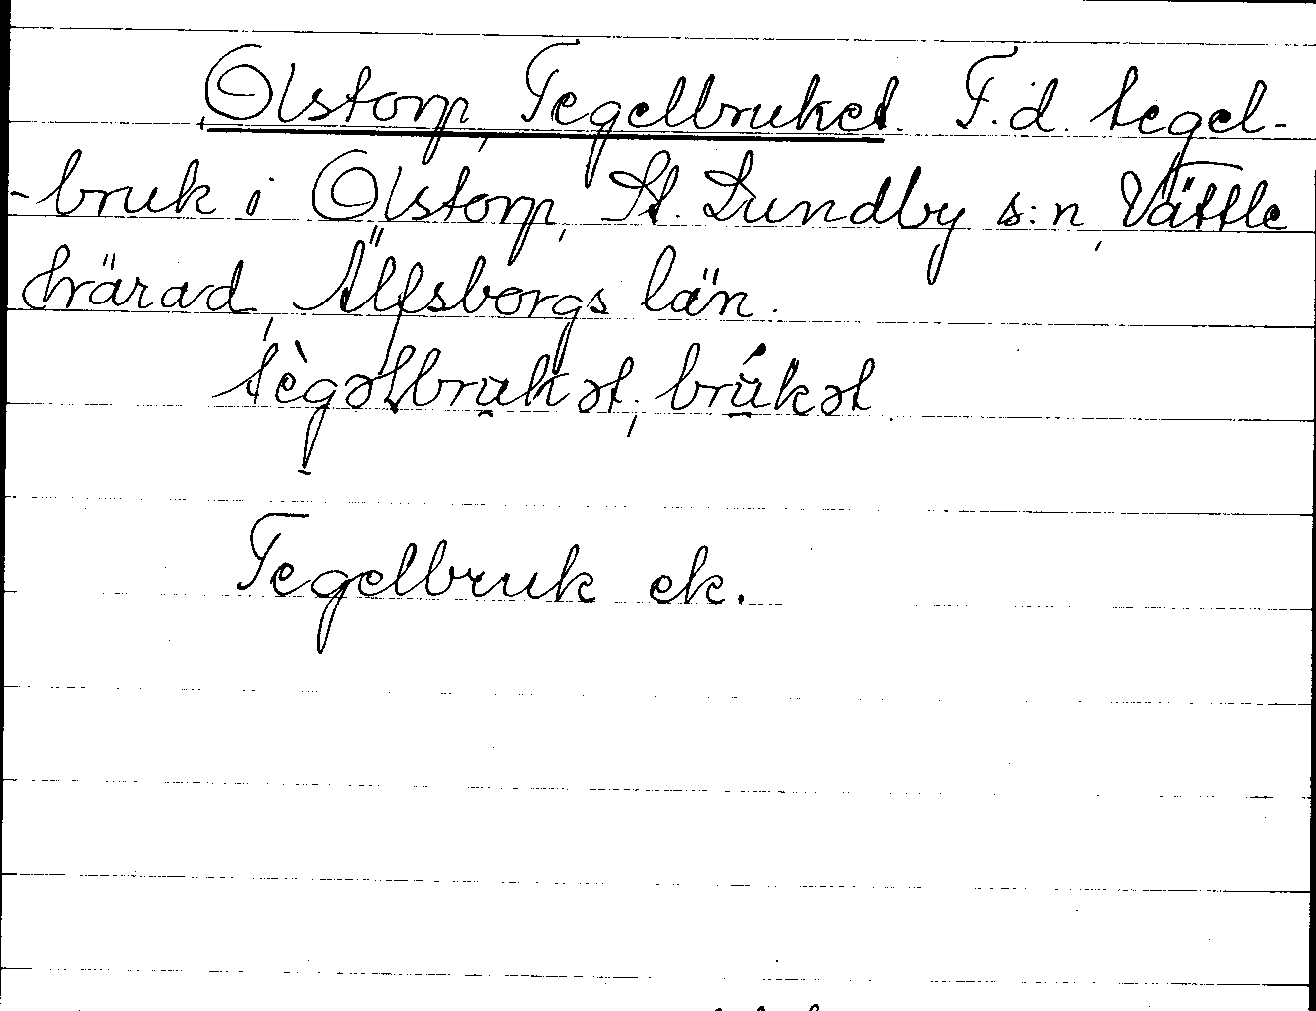 Olstorp, Tegelbruket. F.d. tegel-
-bruk i Olstorp, St. Lundby s:n, Vättle
härad, Älfsborgs län.
tègəlbrukət; brúkət.
Tegelbruk ek.